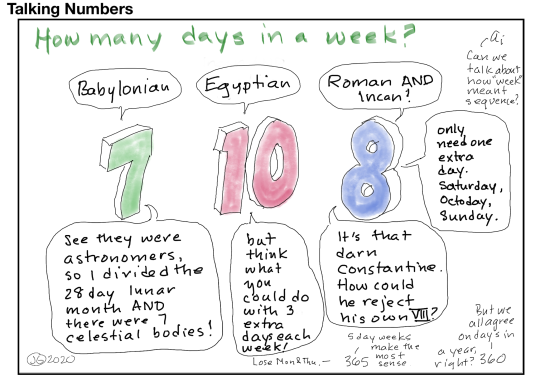 Talking Numbers
How many days in a week?
ai
Can we
talk about
how "week"
meant
sequence?
Babylonian
Egyptian
Roman AND
Incan!
7
10
8
only
need one
extra
day.
Saturday,
Octoday,
Sunday.
See they were
astronomers,
so I divided the
28 day lunar
month AND
there were 7
celestial bodies!
but
think
what
you
could do
with 3
extra
days each
week!
It's that
darn
Constantine.
How could
he reject
his own VIII?
Lose Mon & Thu.—
5 day weeks
make the
most
sense
365
But we
all agree
on days in
a year,
right? 360
2020